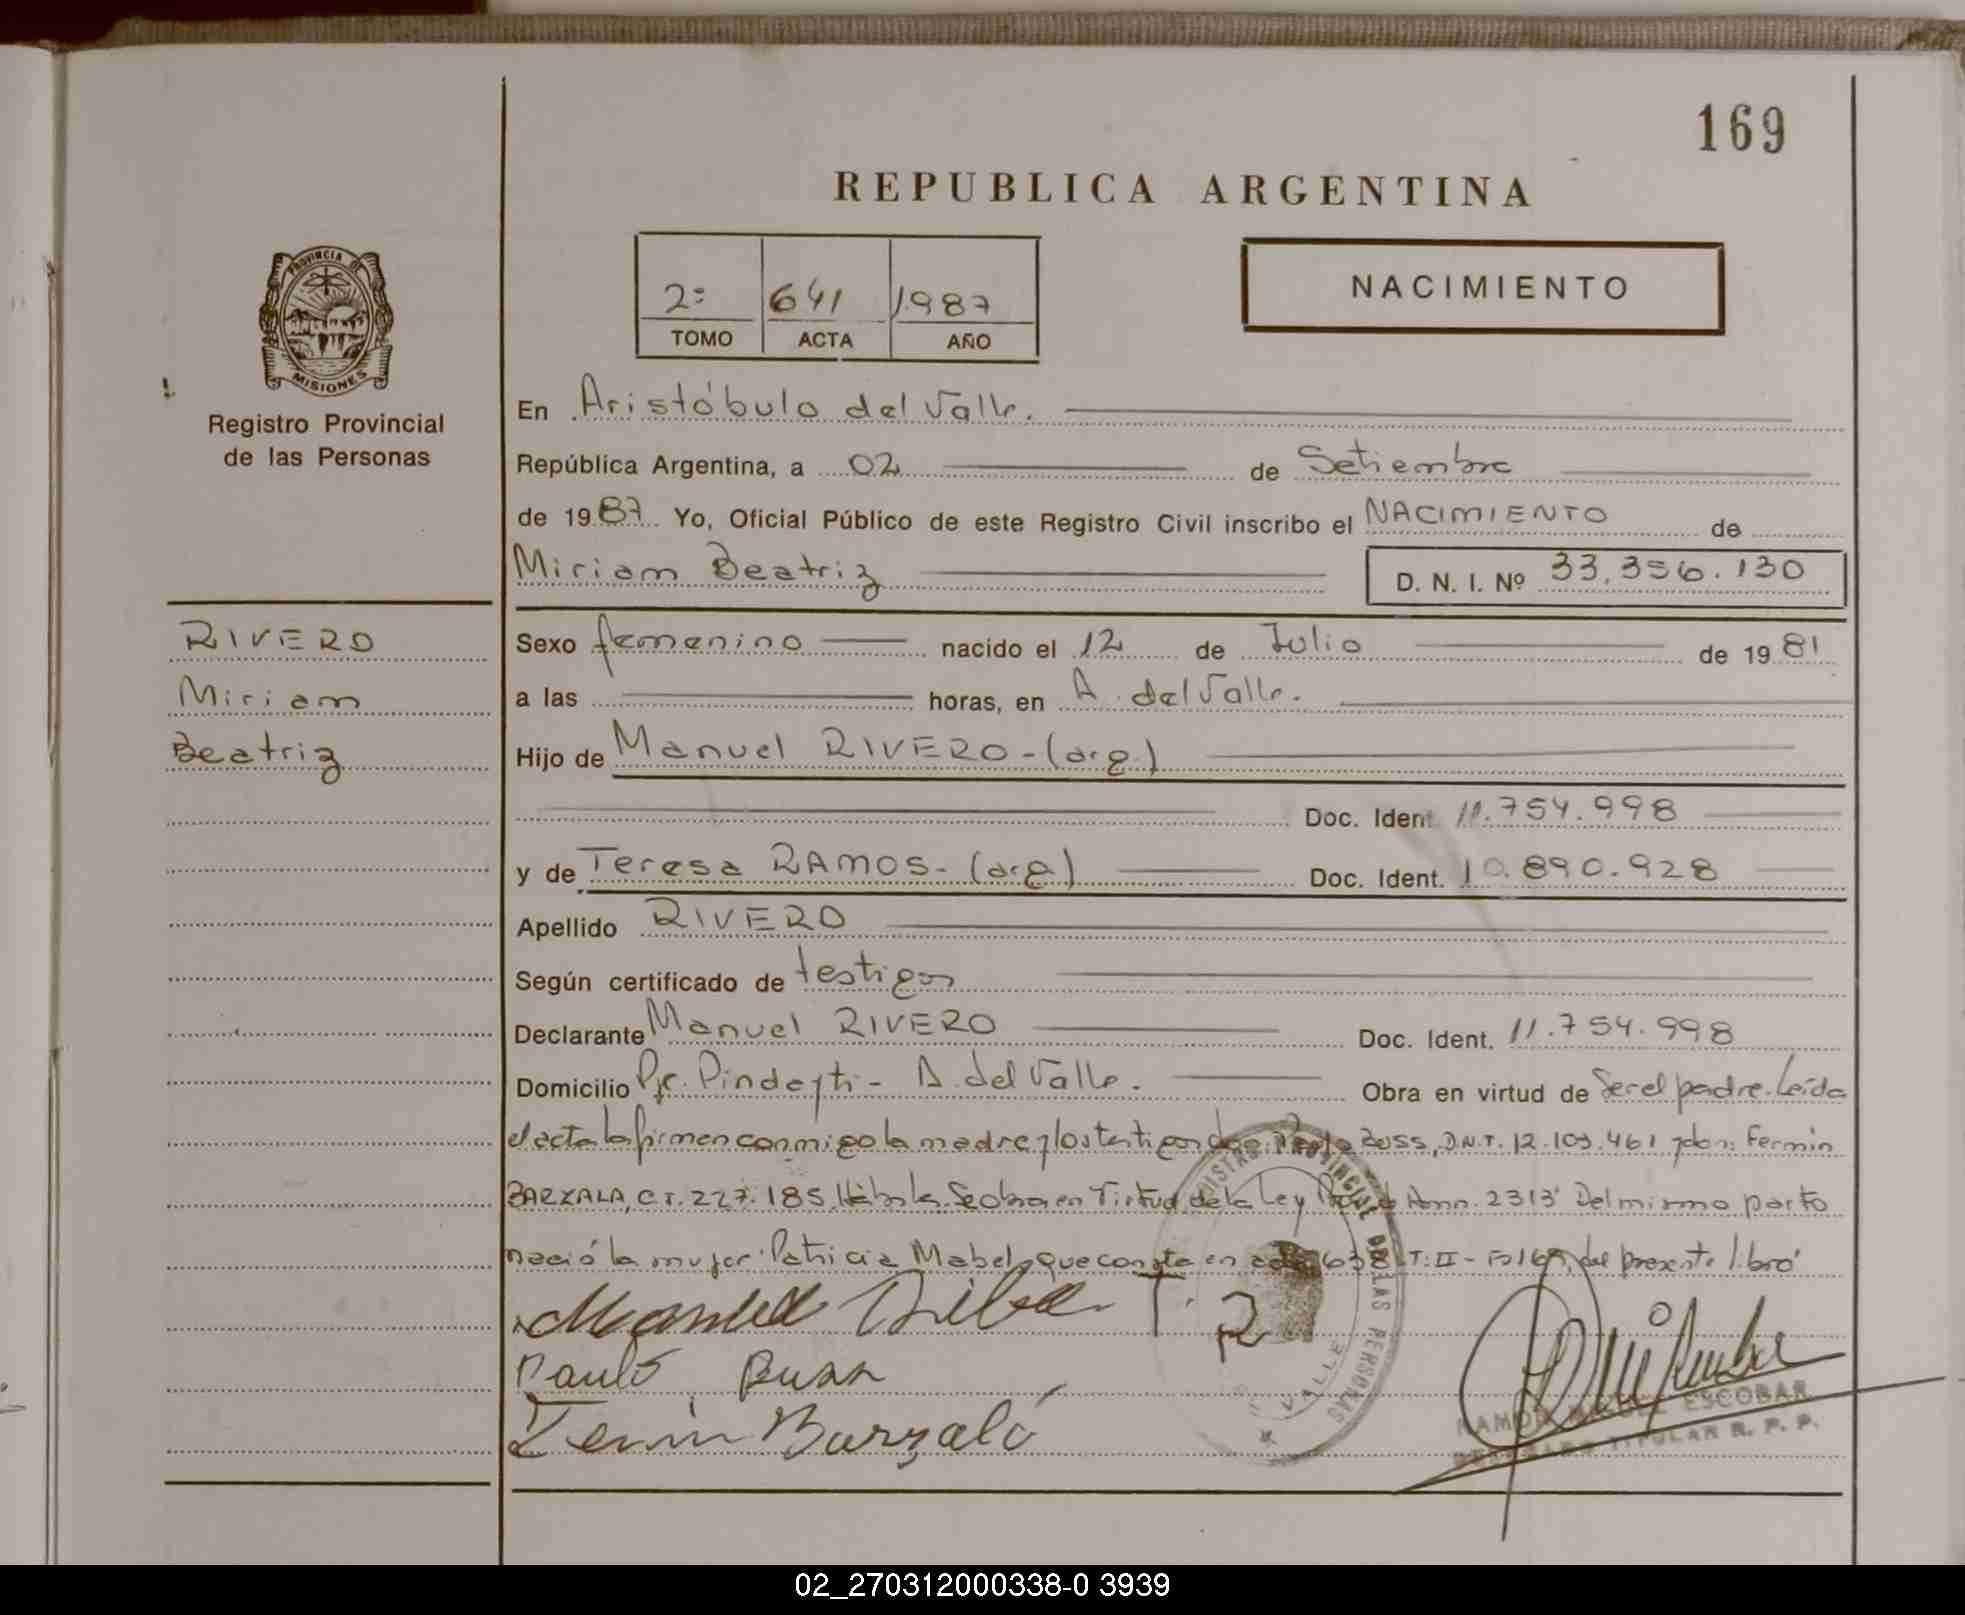 169
REPUBLICA ARGENTINA
2º 641 1987
TOMO ACTA AÑO
NACIMIENTO
PROVINCIA DE
MISIONES
Registro Provincial
de las Personas
RIVERO
Miriam
Beatriz
En Aristóbulo del Valle.
República Argentina, a 02 de Setiembre
de 1987 Yo, Oficial Público de este Registro Civil inscribo el NACIMIENTO de
Miriam Beatriz D. N. I. Nº 33.356.130
Sexo femenino nacido el 12 de Julio de 1981
a las horas, en A. del Valle.
Hijo de Manuel RIVERO-(arg)
Doc. Ident. 11.754.998
y de Teresa RAMOS-(arg) Doc. Ident. 10.890.928
Apellido RIVERO
Según certificado de testigos
Declarante Manuel RIVERO Doc. Ident. 11.754.998
Domicilio A. del Valle. Obra en virtud de Ser el padre. Leída
el acta la firman conmigo la madre y los testigos don: Buss, D.N.I. 12.103.461 y don: Fermin
C.I. 227.185, Se obra en Virtud de la Ley 2313 Del mismo parto
nació la mujer: Patricia Mabel, que consta en acta 638 T:II- del presente libro
Manuel
T. R
Paulo Buss
RAMON MIGUEL ESCOBAR
DELEGADO TITULAR R. P. P.
REGISTRO PROVINCIAL DE LAS PERSONAS
VALLE
02_270312000338-0 3939